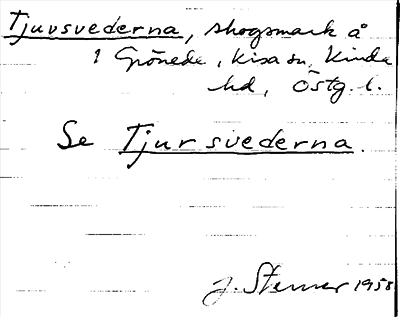 Tjuvsvederna, skogsmark å
1 Grönede, Kisa sn, Kinda
hd, Östg. l.
Se Tjursvederna.
J. Sterner 1958